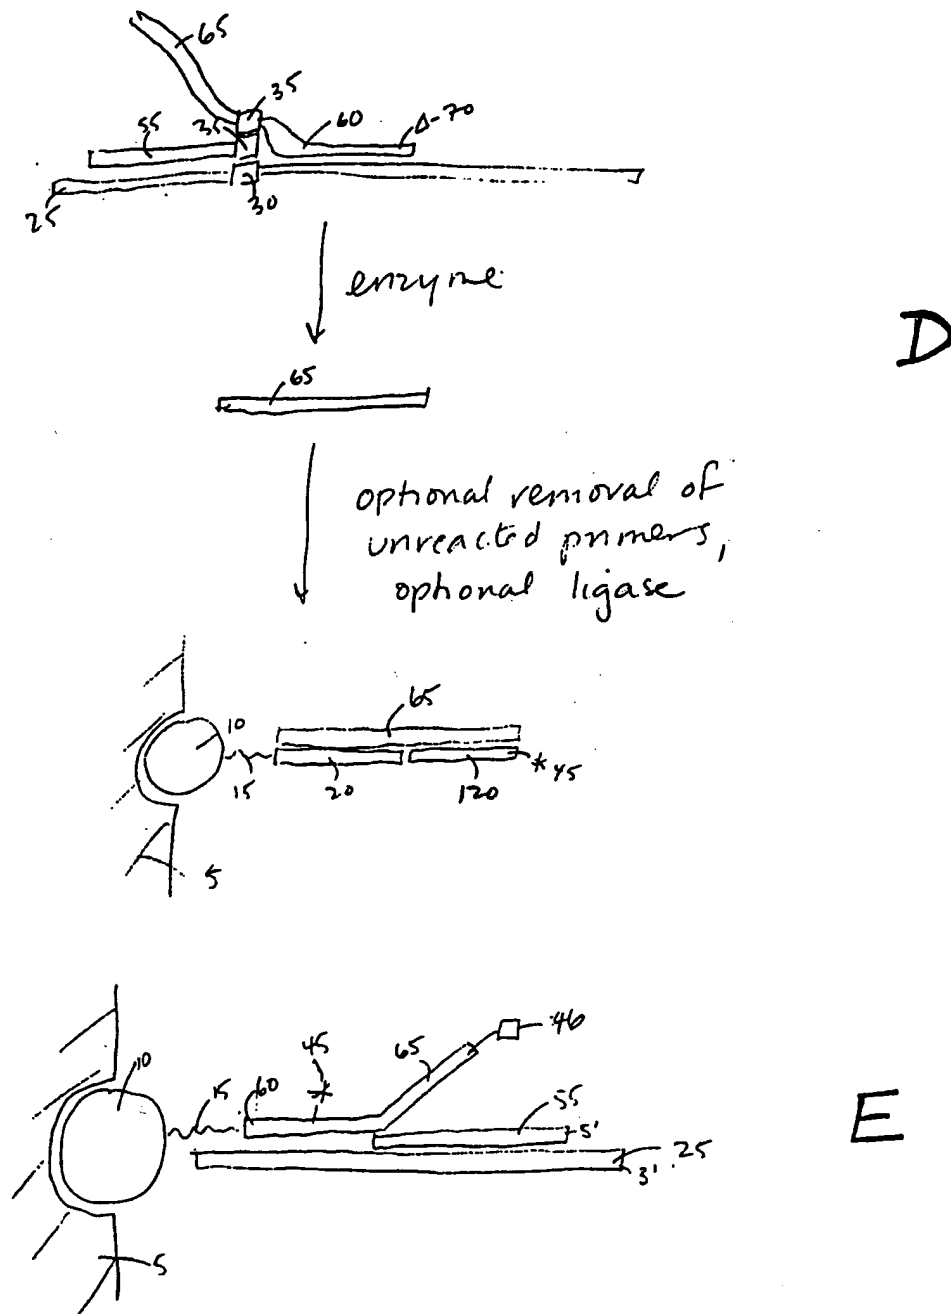 65
35
55
35
60
Δ-70
25
30
enzyme
D
65
optional removal of
unreacted primers,
optional ligase
65
10
15
20
120
*45
5
10
15
60
45
*
65
46
55
5'
25
3'
E
5